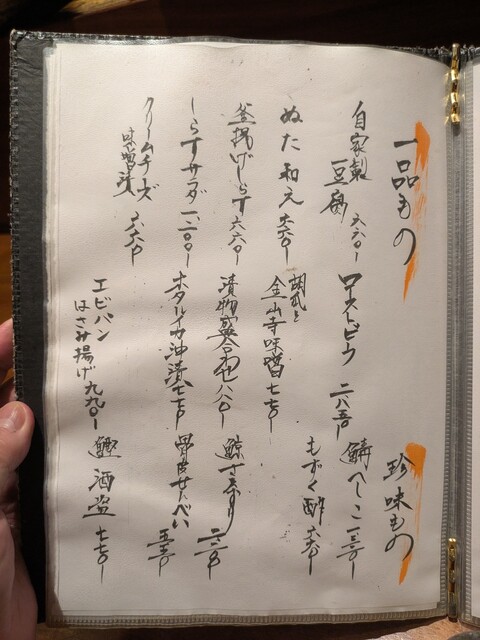 一品もの
自家製豆腐 六六〇
ぬた和え 六六〇
釜揚げしらす 六六〇
しらすサラダ 一二〇〇
クリームチーズ
味噌漬 六六〇
ローストビーフ 二八五〇
胡瓜と
金山寺味噌 七七〇
漬物盛合わせ 八八〇
ホタルイカ沖漬 七七〇
エビパン
はさみ揚げ 九九〇
珍味もの
鯖へしこ
もずく酢 六六〇
鯨
骨せんべい 五五〇
鰹酒盗 七七〇